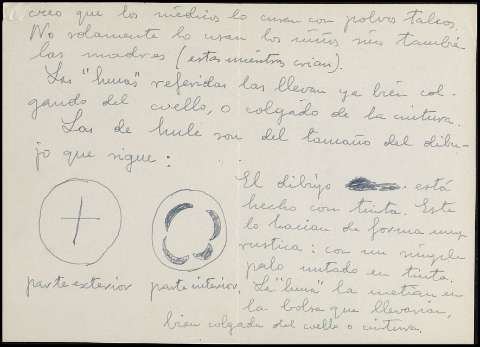 creo que los médicos lo curan con polvos talcos.
No solamente lo usan los niños sino también
las madres (estas mientras crian).
Las "lunas" referidas las llevan ya bién col-
gando del cuello, o colgado de la cintura.
Las de hule son del tamaño del dibu-
jo que sigue:
El dibujo está
hecho con tinta. Este
lo hacian de forma muy
rustica: con un simple
palo untado en tinta.
parte exterior parte interior. La "luna" la metian en
la bolsa que llevarian,
bien colgada del cuello o cintura.